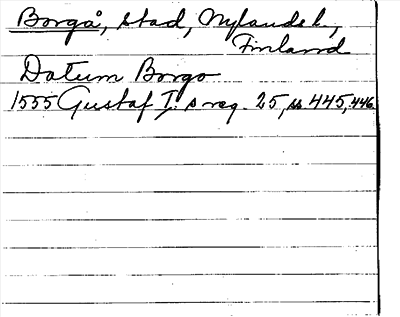 Borgå, stad, Nylands l.,
Finland
Datum Borgo
1555 Gustaf I:s reg. 25, ss 445, 446